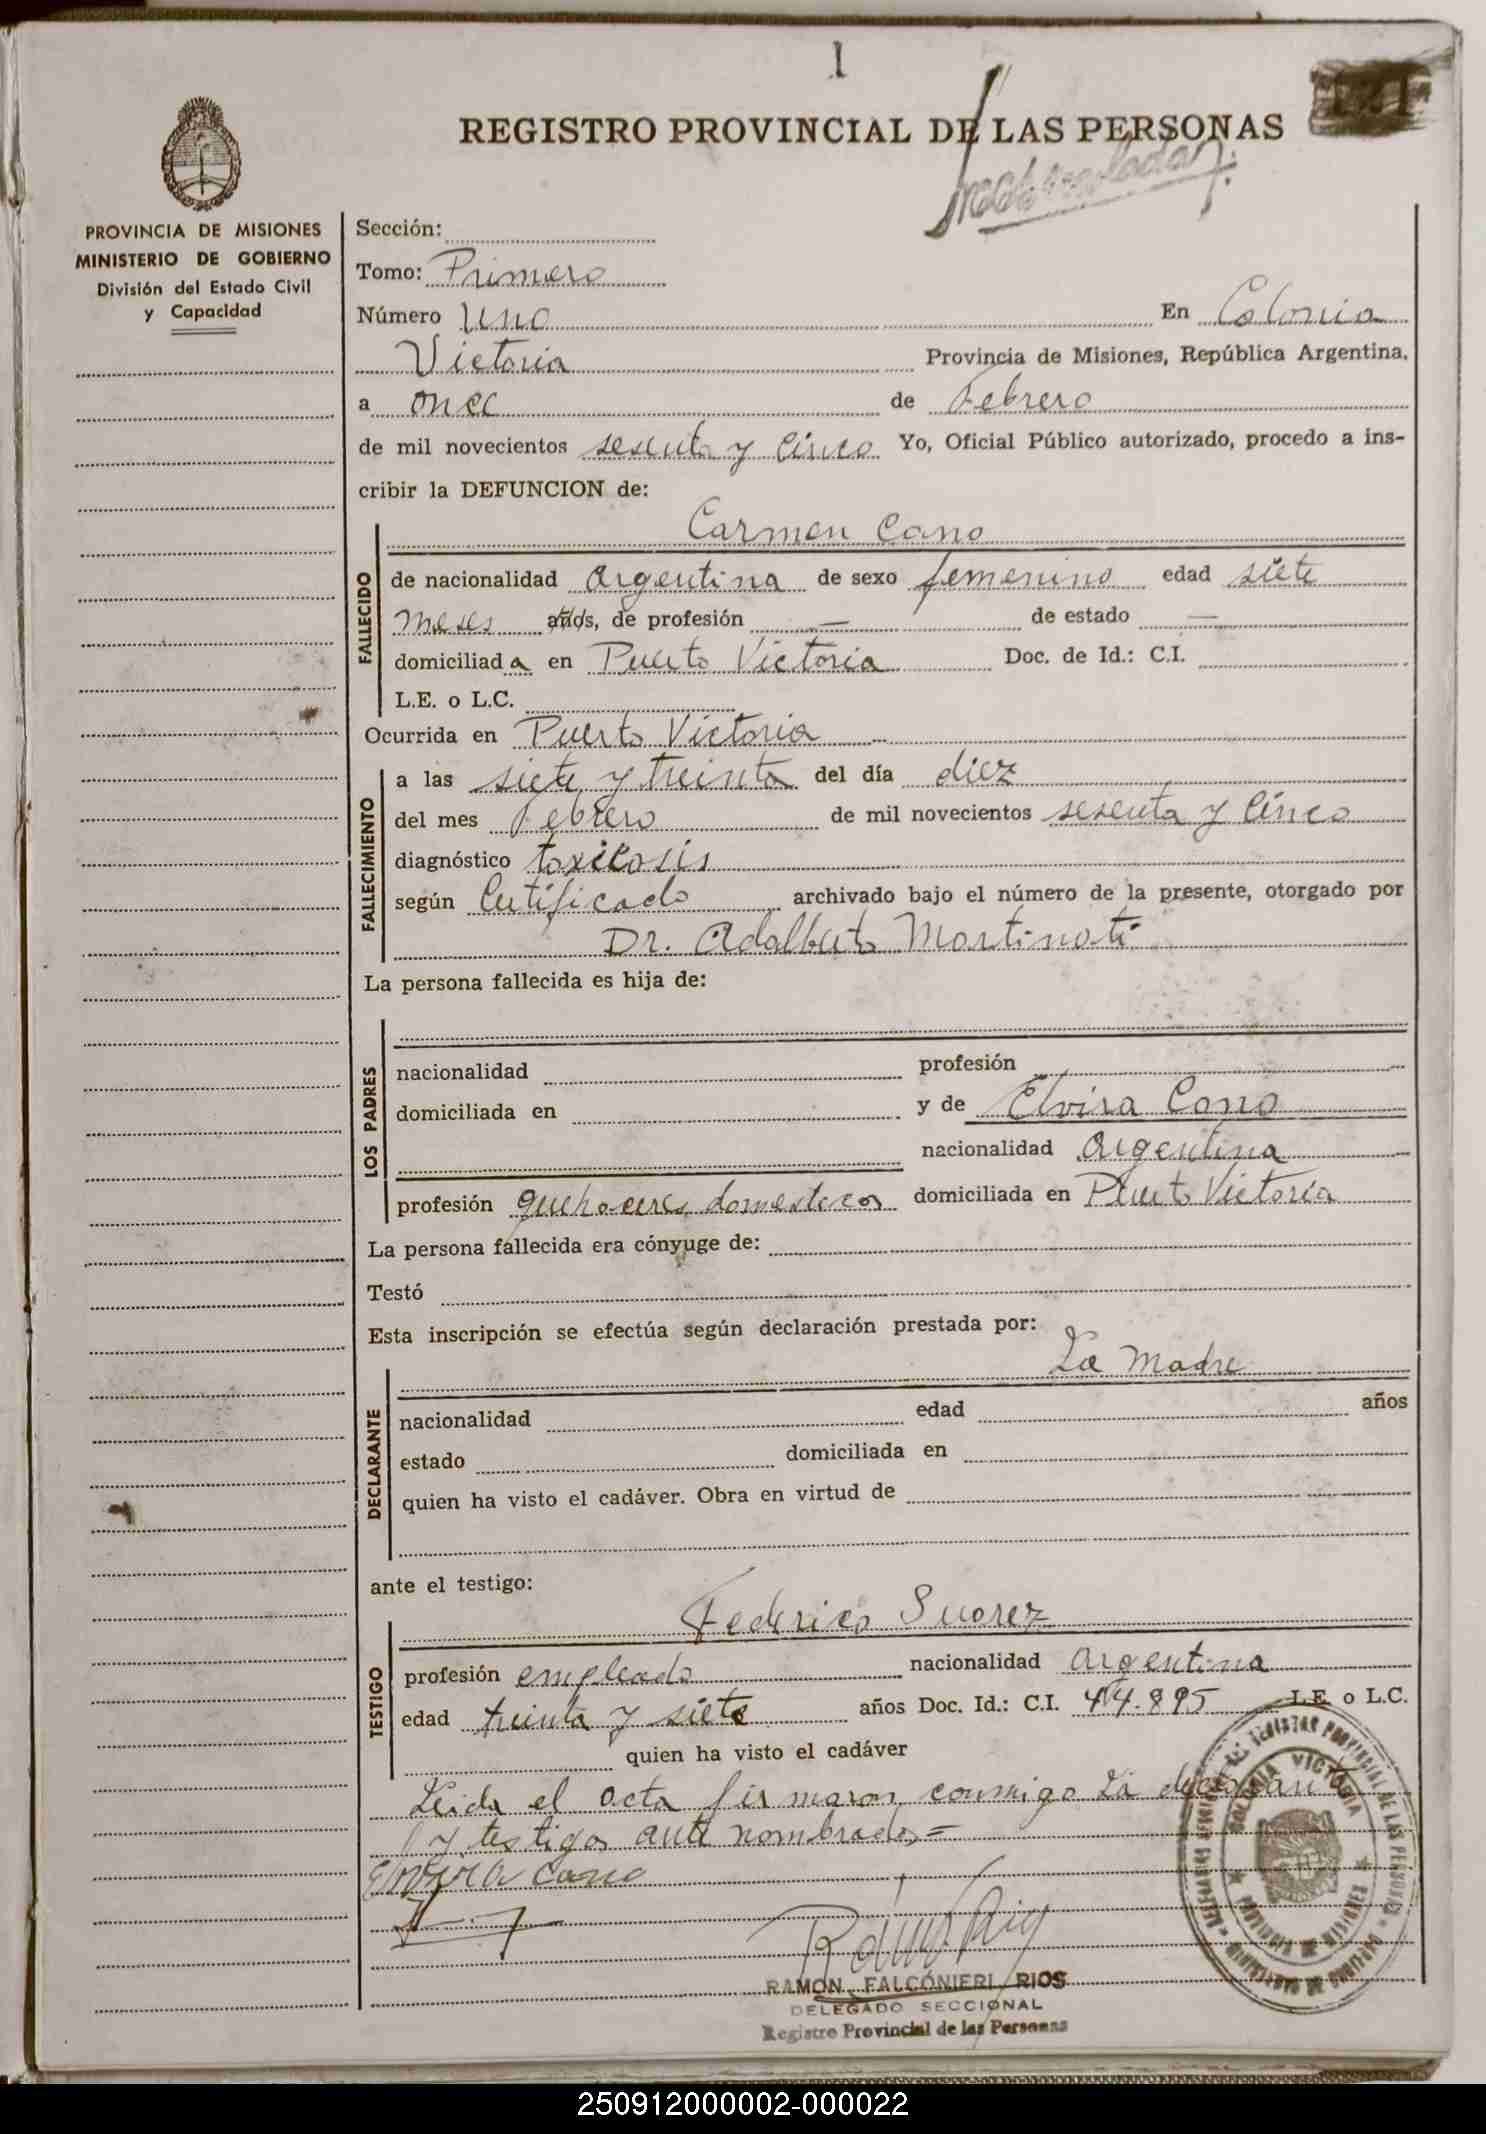 1
REGISTRO PROVINCIAL DE LAS PERSONAS
PROVINCIA DE MISIONES
MINISTERIO DE GOBIERNO
División del Estado Civil
y Capacidad
Sección:
Tomo: Primero
Número Uno En Colonia
Victoria Provincia de Misiones, República Argentina,
a once de Febrero
de mil novecientos sesenta y cinco Yo, Oficial Público autorizado, procedo a ins-
cribir la DEFUNCION de:
Carmen Cano
FALLECIDO
de nacionalidad argentina de sexo femenino edad siete
meses años, de profesión — de estado —
domiciliada en Puerto Victoria Doc. de Id.: C.I.
L.E. o L.C.
Ocurrida en Puerto Victoria
FALLECIMIENTO
a las siete y treinta del día diez
del mes Febrero de mil novecientos sesenta y cinco
diagnóstico toxicosis
según Certificado archivado bajo el número de la presente, otorgado por
Dr. Adalberto Martinoti
La persona fallecida es hija de:
LOS PADRES
nacionalidad profesión
domiciliada en y de Elvira Cano
nacionalidad argentina
profesión quehaceres domesticos domiciliada en Puerto Victoria
La persona fallecida era cónyuge de:
Testó
Esta inscripción se efectúa según declaración prestada por:
La Madre
DECLARANTE
nacionalidad edad años
estado domiciliada en
quien ha visto el cadáver. Obra en virtud de
ante el testigo:
Federico Suarez
TESTIGO
profesión empleado nacionalidad argentina
edad treinta y siete años Doc. Id.: C.I. 44.895 L.E. o L.C.
quien ha visto el cadáver
Leida el acta firmaron conmigo la declarante
y testigos ante nombrados=
Elvira Cano
RAMON FALCONIERI RIOS
DELEGADO SECCIONAL
Registro Provincial de las Personas
COLONIA VICTORIA
PROVINCIA DE MISIONES
250912000002-000022